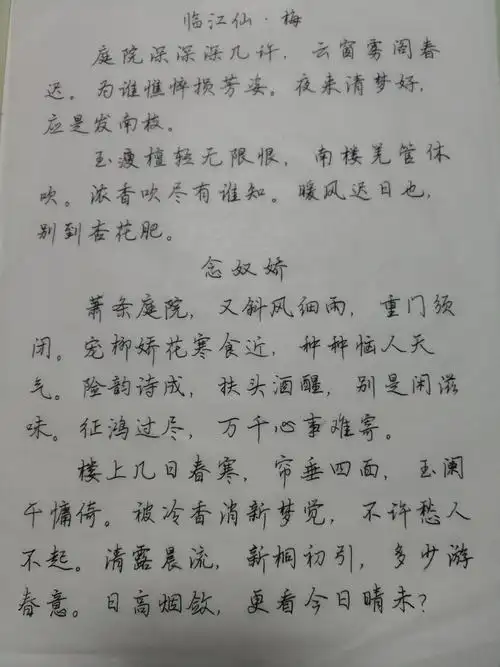 临江仙·梅
庭院深深深几许，云窗雾阁春
迟。为谁憔悴损芳姿。夜来清梦好，
应是发南枝。
玉瘦檀轻无限恨，南楼羌管休
吹。浓香吹尽有谁知。暖风迟日也，
别到杏花肥。
念奴娇
萧条庭院，又斜风细雨，重门须
闭。宠柳娇花寒食近，种种恼人天
气。险韵诗成，扶头酒醒，别是闲滋
味。征鸿过尽，万千心事难寄。
楼上几日春寒，帘垂四面，玉阑
干慵倚。被冷香消新梦觉，不许愁人
不起。清露晨流，新桐初引，多少游
春意。日高烟敛，更看今日晴未？